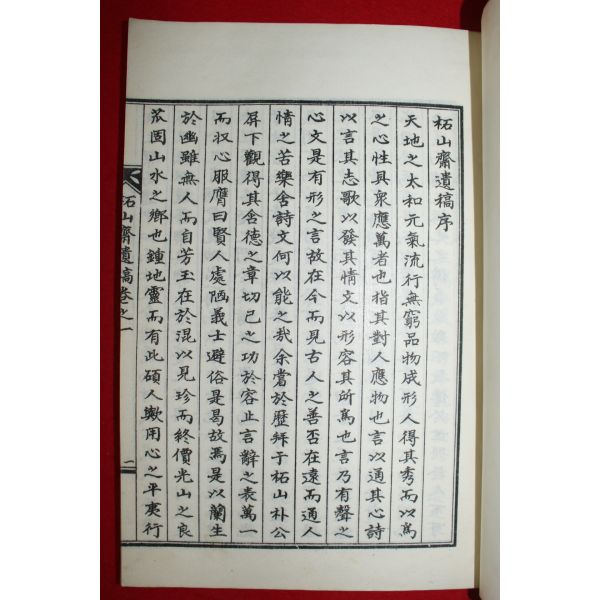 柘山齋遺稿序
天地之太和元氣流行無窮品物成形人得其秀而以爲
之心性具衆應萬者也指其對人應物也言以通其心詩
以言其志歌以發其情文以形容其所爲也言乃有聲之
心文是有形之言故在今而見古人之善否在遠而通人
情之苦樂舍詩文何以能之哉余嘗於歷拜于柘山朴公
屛下觀得其含德之章切己之功於容止言辭之表萬一
而収心服膺曰賢人處陋義士避俗是曷故焉是以蘭生
於幽雖無人而自芳玉在於混以見珍而終價光山之良
苽固山水之鄕也鍾地靈而有此碩人歟用心之平夷行
柘山齋遺稿卷之一
一